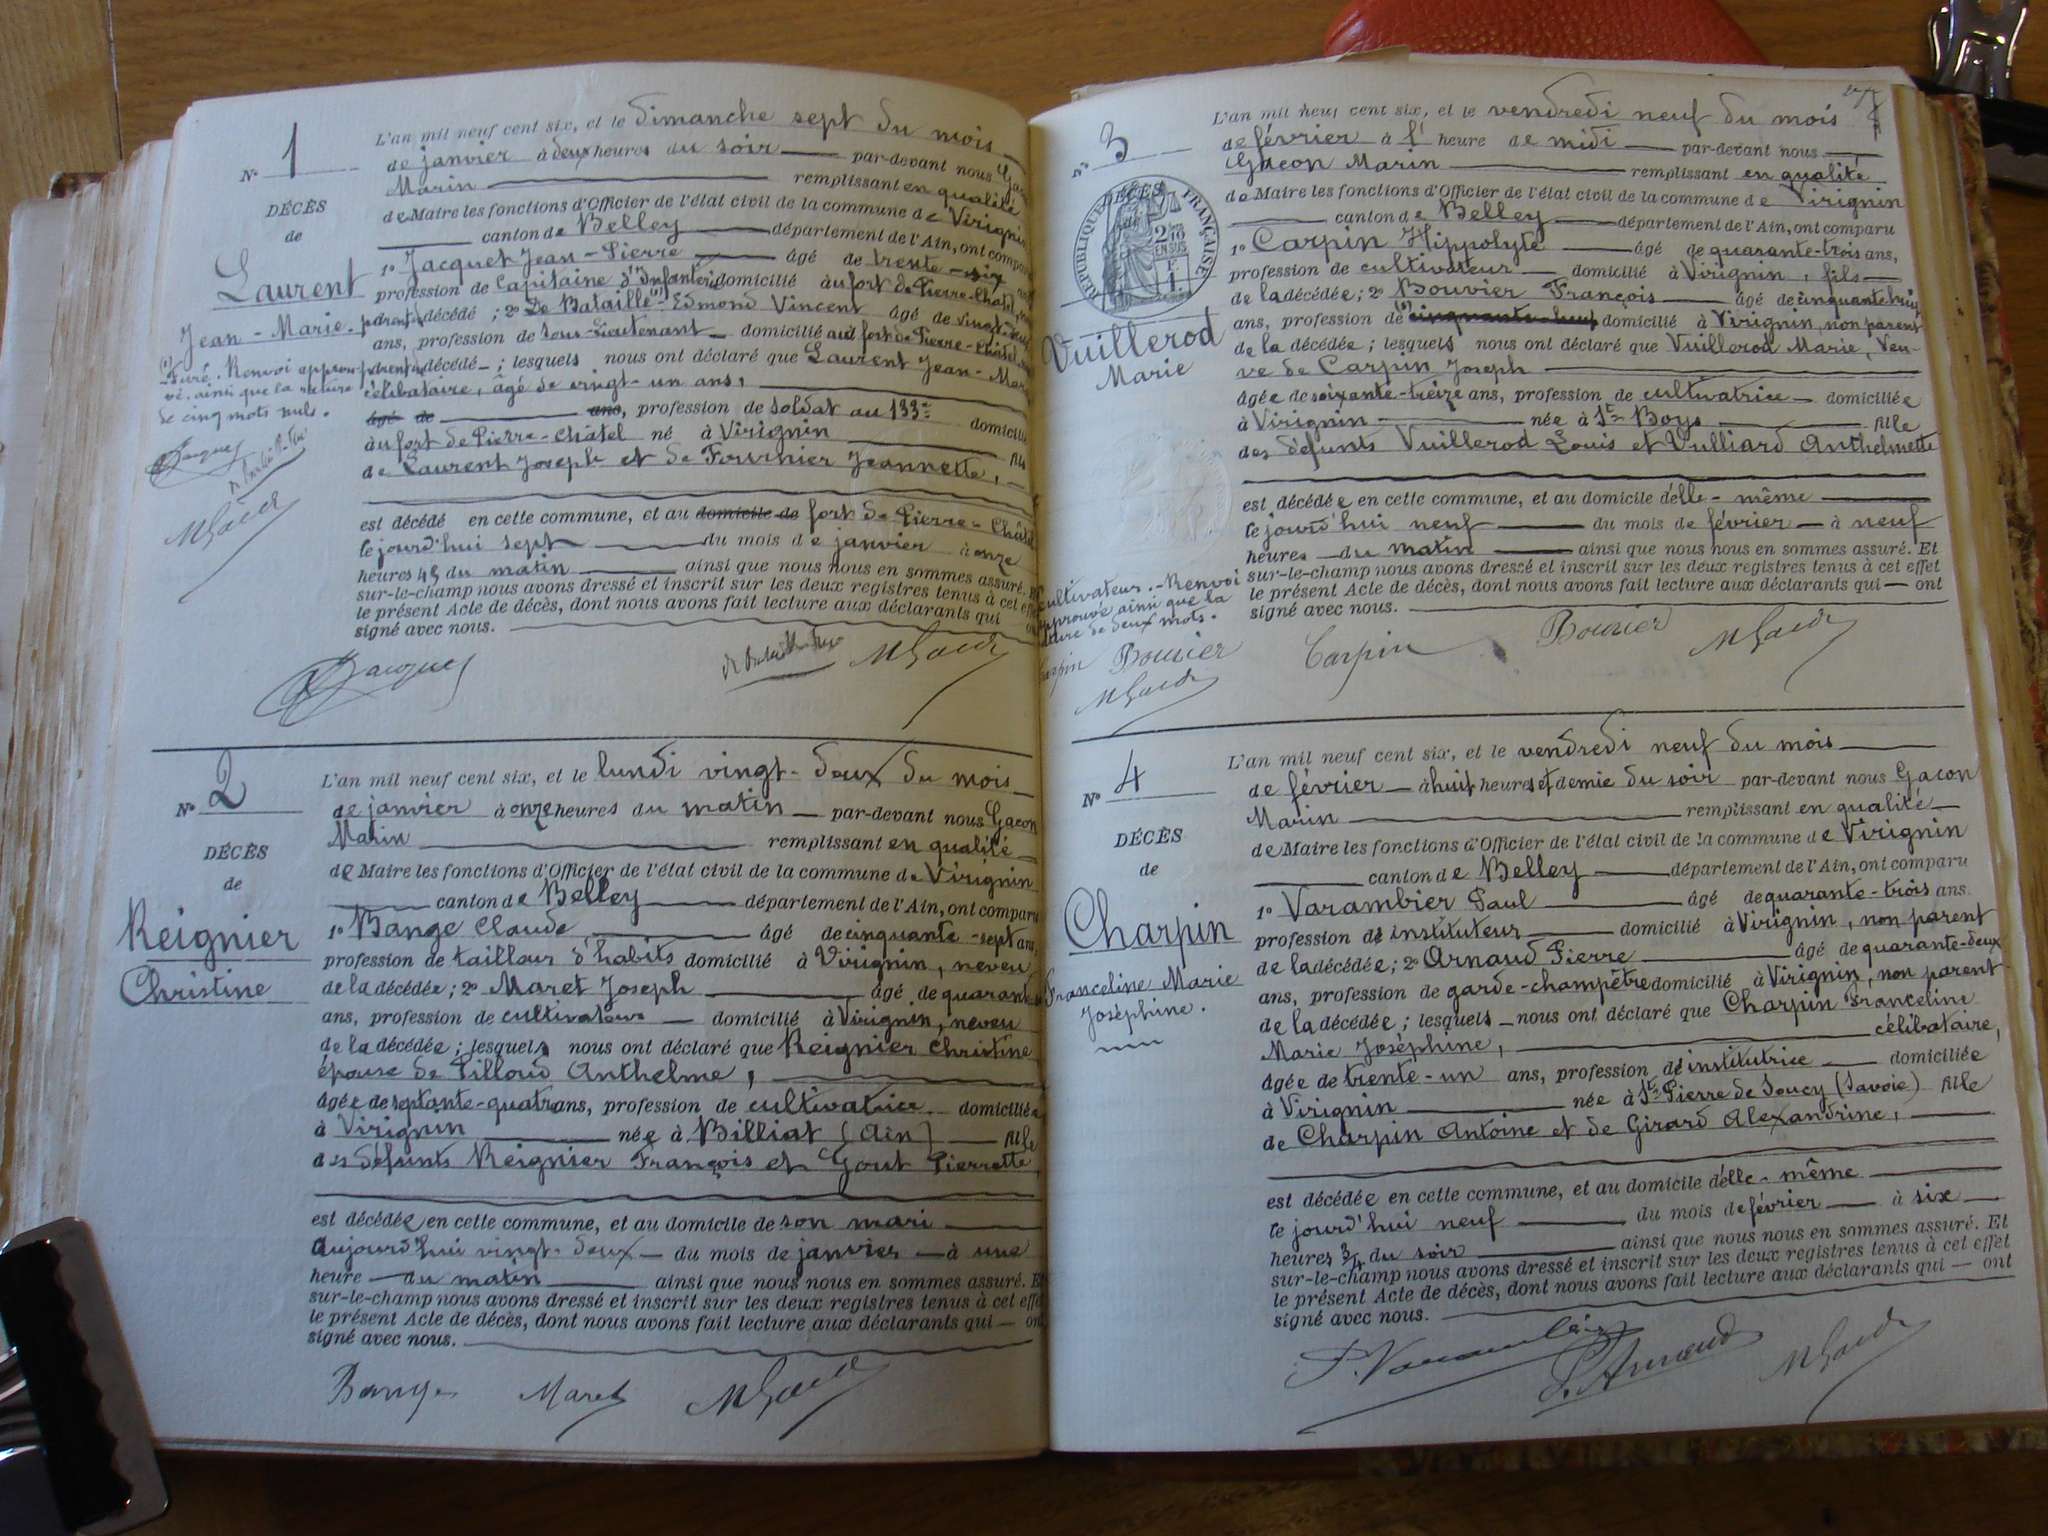 N° 1
DÉCÈS
de
Laurent
Jean-Marie.
L'an mil neuf cent six, et le dimanche sept du mois
de janvier à deux heures du soir par-devant nous
Marin remplissant en qualité
de Maire les fonctions d'Officier de l'état civil de la commune de Virignin
canton de Belley département de l'Ain, ont comparu
1° Jacquet Jean-Pierre âgé de trente-six
profession de Capitaine d'Infanterie domicilié au fort de Pierre-Châtel
décédé ; 2° De Bataille Edmond Vincent âgé de vingt-
ans, profession de sous-lieutenant domicilié au fort de Pierre-Châtel
décédé ; lesquels nous ont déclaré que Laurent Jean-Mar
célibataire, âgé de vingt-un ans,
âgé de ans, profession de soldat au 133e domicilié
au fort de Pierre-Châtel né à Virignin fils
de Laurent Joseph et de Fournier Jeannette,
est décédé en cette commune, et au domicile de fort de Pierre-Châtel
le jourd'hui sept du mois de janvier à onze
heures 45 du matin ainsi que nous nous en sommes assuré. Et
sur-le-champ nous avons dressé et inscrit sur les deux registres tenus à cet effet
le présent Acte de décès, dont nous avons fait lecture aux déclarants qui
signé avec nous.
Renvoi approu-
vé. ainsi que la rature
de cinq mots nuls.
Jacquet
MGacon
Jacquet
MGacon
N° 2
DÉCÈS
de
Reignier
Christine
L'an mil neuf cent six, et le lundi vingt-deux du mois
de janvier à onze heures du matin par-devant nous Gacon
Marin remplissant en qualité
de Maire les fonctions d'Officier de l'état civil de la commune de Virignin
canton de Belley département de l'Ain, ont comparu
1° Bange Claude âgé de cinquante-sept ans,
profession de tailleur d'habits domicilié à Virignin, neveu
de la décédée; 2° Maret Joseph âgé de quarante
ans, profession de cultivateur domicilié à Virignin, neveu
de la décédée; lesquels nous ont déclaré que Reignier Christine
épouse de Pilloud Anthelme,
âgée de septante-quatre ans, profession de cultivatrice domiciliée
à Virignin née à Billiat (Ain) fille
des défunts Reignier François et Gout Pierrette
est décédée en cette commune, et au domicile de son mari
aujourd'hui vingt-deux du mois de janvier à une
heure du matin ainsi que nous nous en sommes assuré. Et
sur-le-champ nous avons dressé et inscrit sur les deux registres tenus à cet effet
le présent Acte de décès, dont nous avons fait lecture aux déclarants qui ont
signé avec nous.
Bange Maret MGacon
N° 3
RÉPUBLIQUE FRANÇAISE
DÉCÈS
Vuillerod
Marie
L'an mil neuf cent six, et le vendredi neuf du mois
de février à l' heure de midi par-devant nous
Gacon Marin remplissant en qualité
de Maire les fonctions d'Officier de l'état civil de la commune de Virignin
canton de Belley département de l'Ain, ont comparu
1° Carpin Hippolyte âgé de quarante-trois ans,
profession de cultivateur domicilié à Virignin, fils
de la décédée; 2° Bouvier François âgé de cinquante-huit
ans, profession de cinquante-huit domicilié à Virignin, non parent
de la décédée; lesquels nous ont déclaré que Vuillerod Marie, Veu-
ve de Carpin Joseph
âgée de soixante-treize ans, profession de cultivatrice domiciliée
à Virignin née à St Boys fille
des défunts Vuillerod Louis et Vulliard Anthelmette
est décédée en cette commune, et au domicile d'elle-même
le jourd'hui neuf du mois de février à neuf
heures du matin ainsi que nous nous en sommes assuré. Et
sur-le-champ nous avons dressé et inscrit sur les deux registres tenus à cet effet
le présent Acte de décès, dont nous avons fait lecture aux déclarants qui ont
signé avec nous.
cultivateur. Renvoi
approuvé ainsi que la
rature de deux mots.
Carpin Bouvier
MGacon
Carpin Bouvier MGacon
N° 4
DÉCÈS
de
Charpin
Franceline Marie
Joséphine.
L'an mil neuf cent six, et le vendredi neuf du mois
de février à huit heures et demie du soir par-devant nous Gacon
Marin remplissant en qualité
de Maire les fonctions d'Officier de l'état civil de la commune de Virignin
canton de Belley département de l'Ain, ont comparu
1° Varambier Paul âgé de quarante-trois ans.
profession d'instituteur domicilié à Virignin, non parent
de la décédée; 2° Arnaud Pierre âgé de quarante-deux
ans, profession de garde-champêtre domicilié à Virignin, non parent
de la décédée; lesquels nous ont déclaré que Charpin Franceline
Marie Joséphine, célibataire,
âgée de trente-un ans, profession d'institutrice domiciliée
à Virignin née à St Pierre de Soucy (Savoie) fille
de Charpin Antoine et de Girard Alexandrine,
est décédée en cette commune, et au domicile d'elle-même
le jourd'hui neuf du mois de février à six
heures 3/4 du soir ainsi que nous nous en sommes assuré. Et
sur-le-champ nous avons dressé et inscrit sur les deux registres tenus à cet effet
le présent Acte de décès, dont nous avons fait lecture aux déclarants qui ont
signé avec nous.
P. Varambier P. Arnaud MGacon